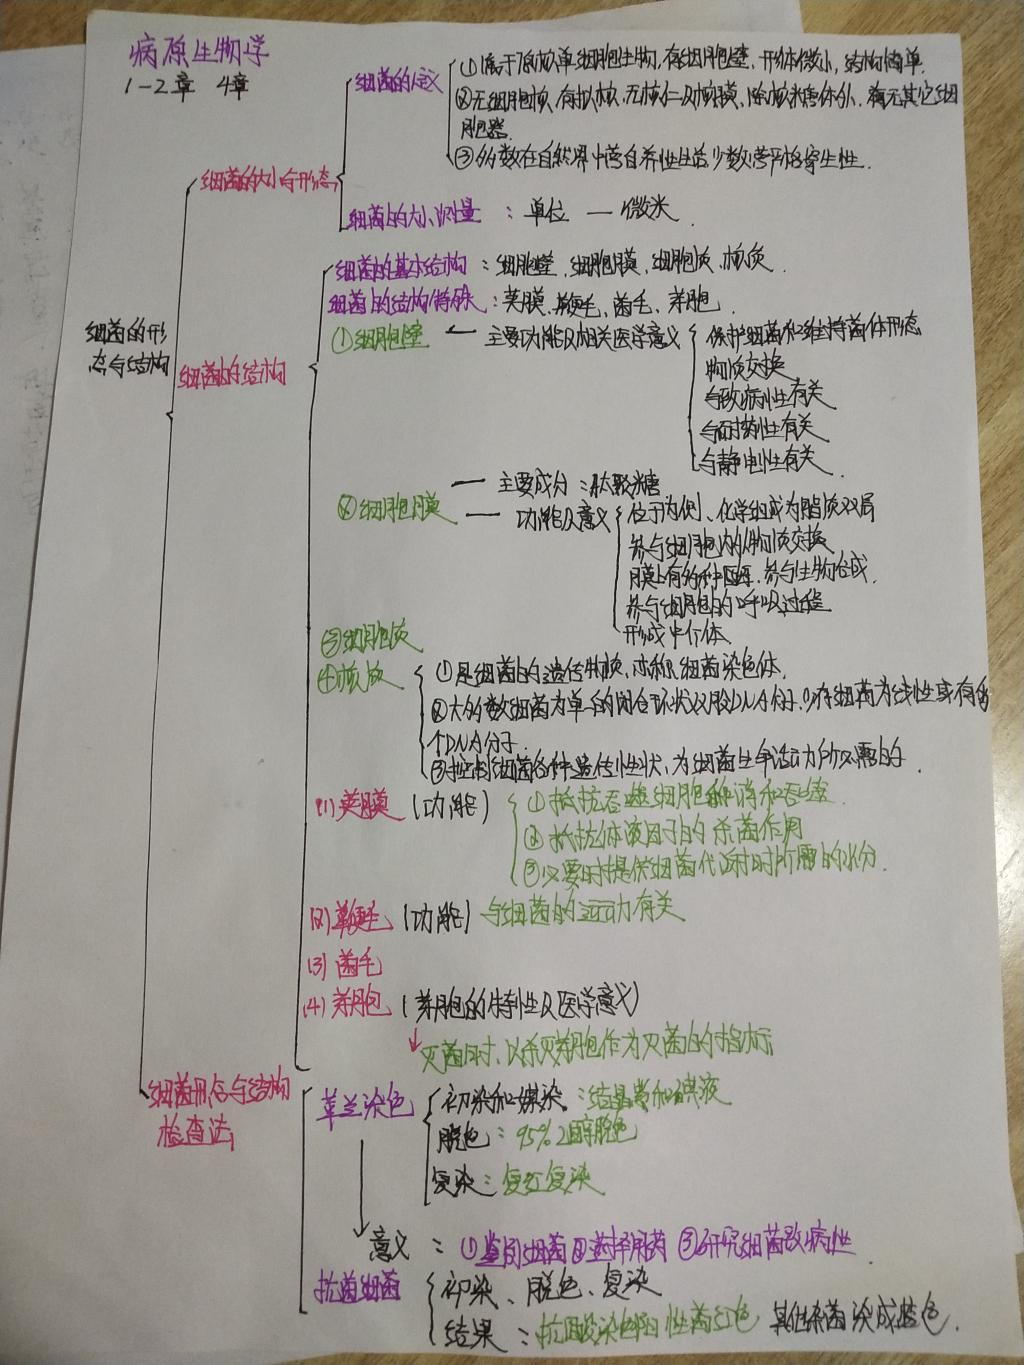 病原生物学
1-2章 4章
细菌的形态与结构
细菌的大小与形态
细菌的定义
①属于原核单细胞生物,有细胞壁、形体微小,结构简单
②无细胞核,有拟核,无核仁及核膜,除核糖体外,无其它细
胞器.
③多数在自然界中营自养性生活,少数营严格寄生性.
细菌的大小测量 : 单位 — 微米
细菌的结构
细菌的基本结构 : 细胞壁、细胞膜、细胞质、核质.
细菌的结构特殊 : 荚膜、鞭毛、菌毛、芽胞.
①细胞壁 — 主要功能及相关医学意义
保护细菌和维持菌体形态
物质交换
与致病性有关
与耐药性有关
与静电性有关
②细胞膜
— 主要成分:肽聚糖
— 功能及意义
位于内侧、化学组成为脂质双层
参与细胞内外物质交换
膜上有多种酶,参与生物合成.
参与细胞的呼吸过程
形成中介体
③细胞质
④核质
①是细菌的遗传物质,亦称细菌染色体.
②大多数细菌为单个的闭合环状双股DNA分子.少有细菌为线性或有多
个DNA分子.
③控制细菌各种遗传性状,为细菌生命活动所必需的.
(1)荚膜(功能)
①抵抗吞噬细胞 消和吞噬
②抵抗体液因子的杀菌作用
③必要时提供细菌代谢时所需的水分.
(2)鞭毛(功能) 与细菌的运动有关
(3)菌毛
(4)芽胞(芽胞的特性及医学意义)
灭菌时、以杀灭芽胞作为灭菌的指标
细菌形态与结构
检查法
革兰染色
初染和媒染:结晶紫和碘液
脱色:95%乙醇脱色
复染:复红复染
意义:①鉴别细菌②选择用药③研究细菌致病性
抗菌细菌
初染、脱色、复染
结果:抗酸染色阳性菌红色 其他杂菌染成蓝色.